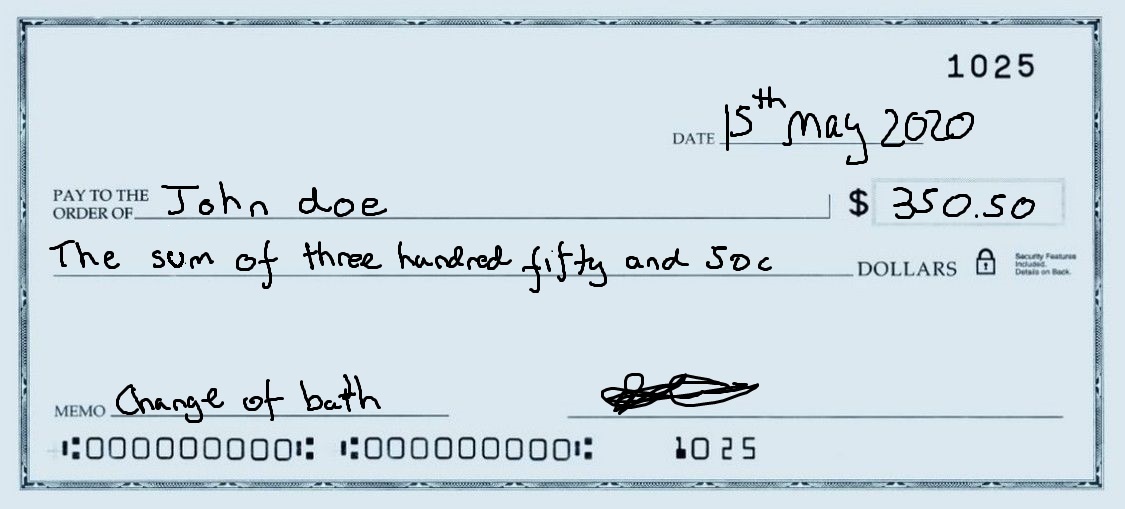 1025
DATE 15th May 2020
PAY TO THE ORDER OF John doe $ 350.50
The sum of three hundred fifty and 50c DOLLARS
Security Features Included. Details on Back.
MEMO Change of bath
⑆000000000⑆ ⑆000000000⑆ 1025